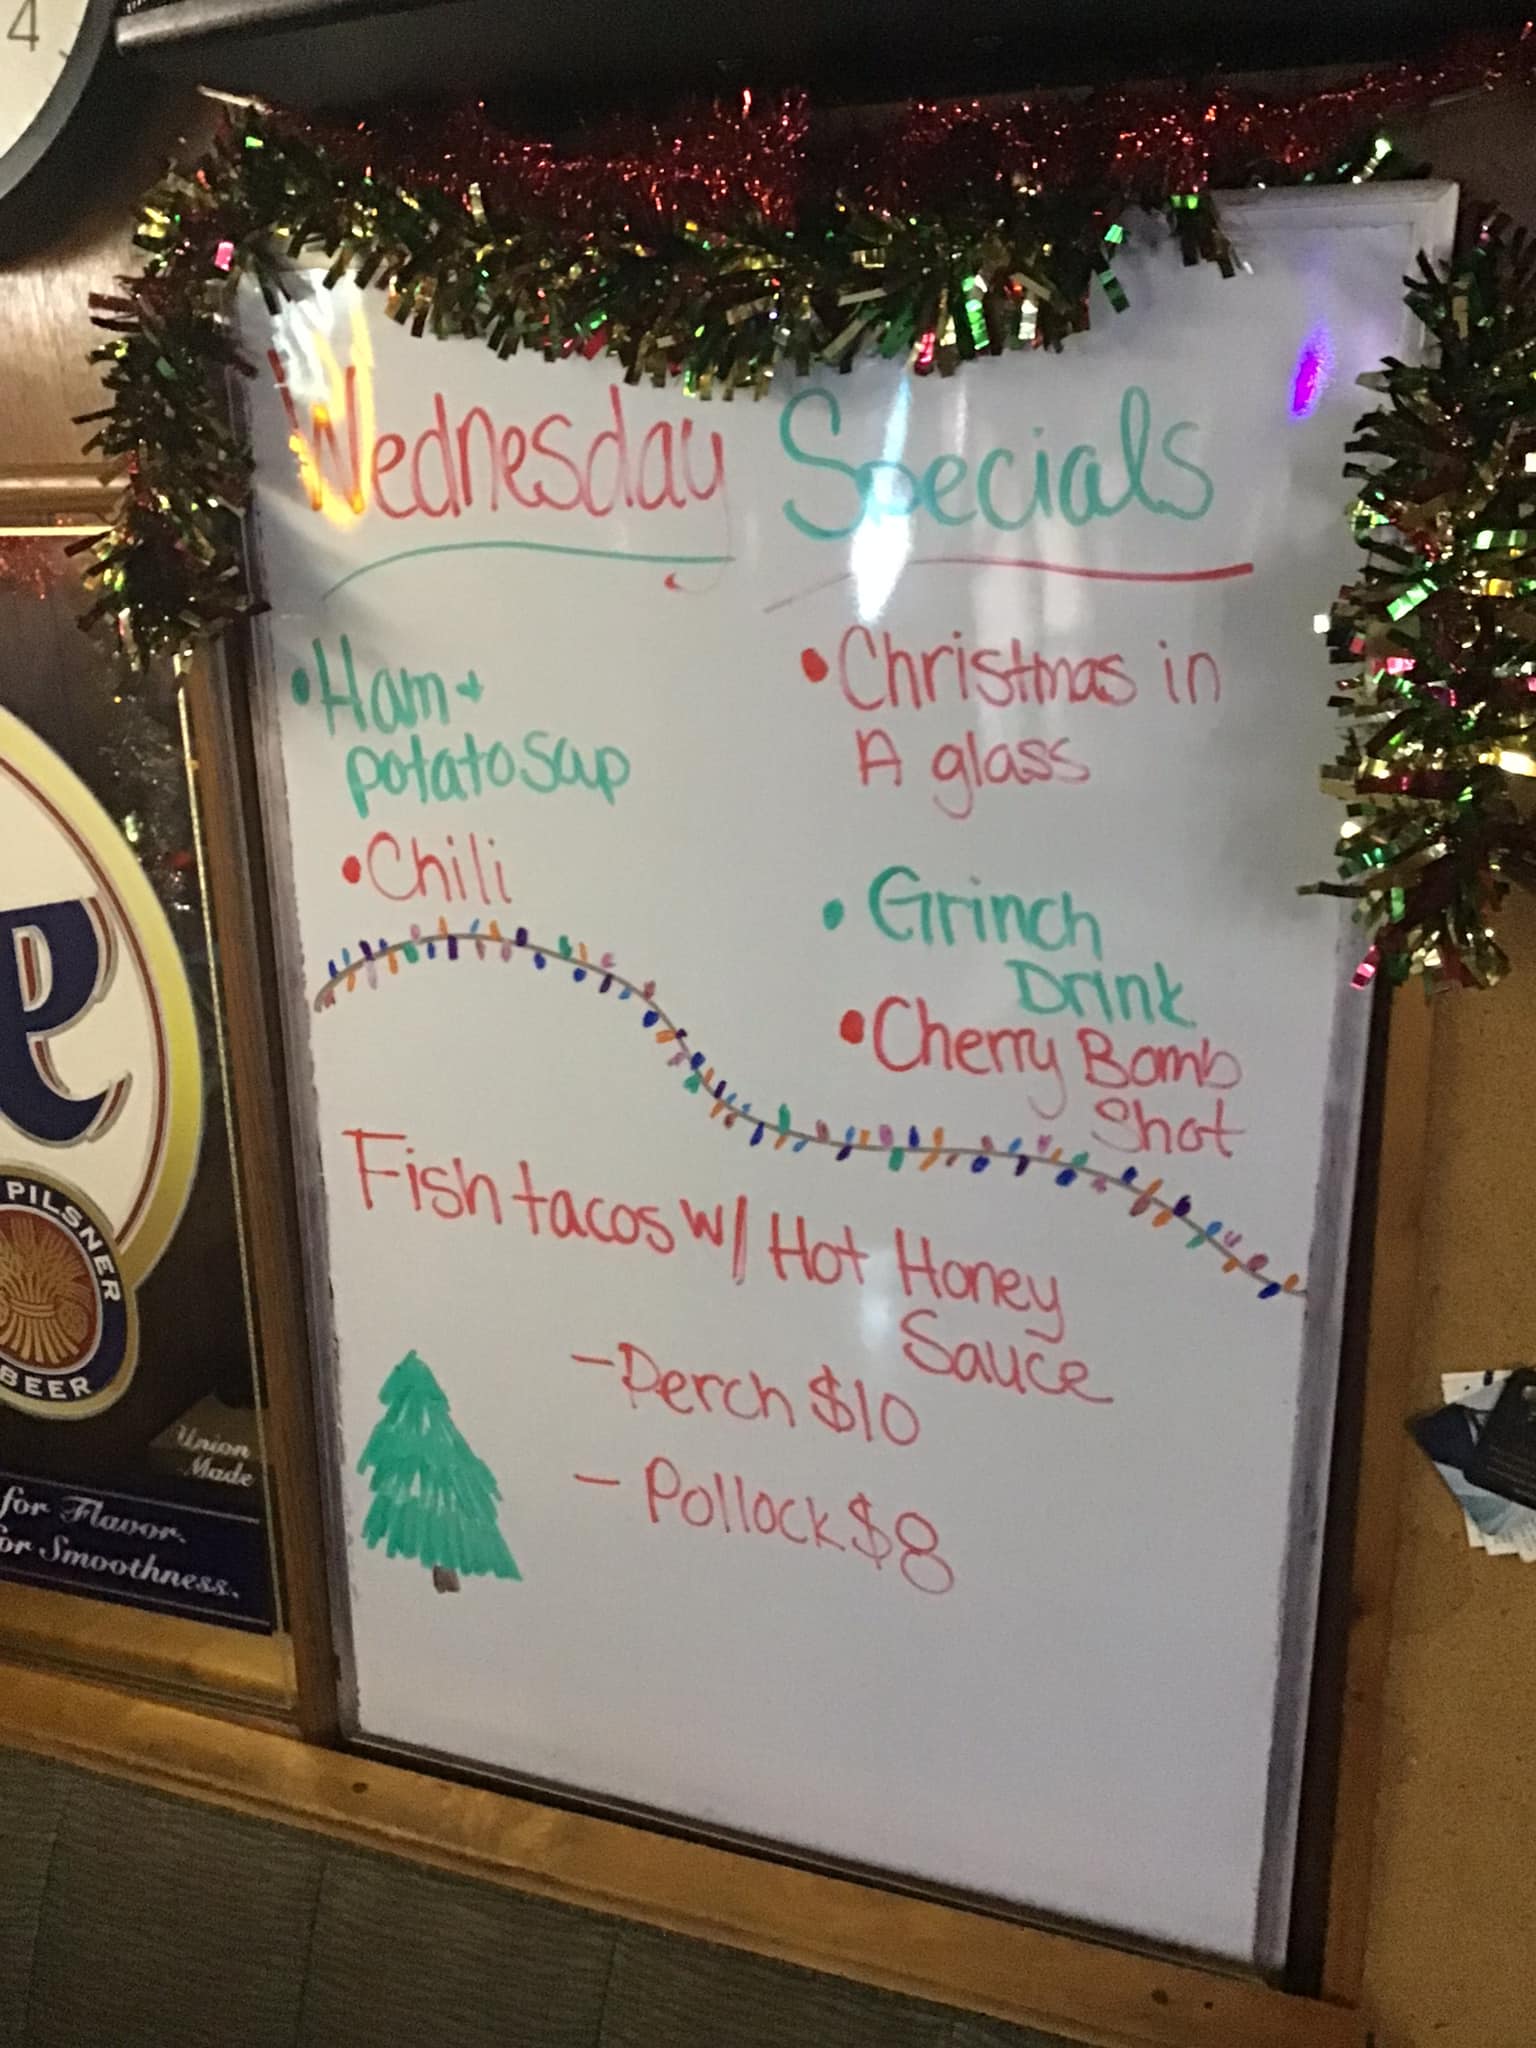 4
Wednesday Specials
•Ham +
potato Soup
•Chili
•Christmas in
A glass
•Grinch
Drink
•Cherry Bomb
Shot
Fish tacos w/ Hot Honey
Sauce
-Perch $10
- Pollock $8
e
PILSNER
BEER
Union
Made
for Flavor.
or Smoothness.